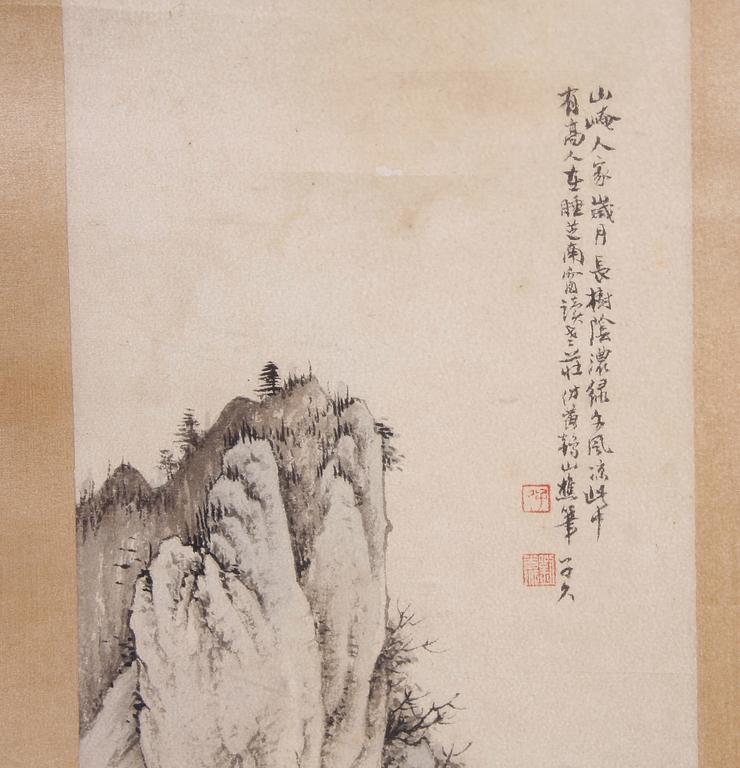 山崦人家歲月長樹陰濃綠午風涼此中
有高人在睡芝南窗讀老莊仿黃鶴山樵筆 子久